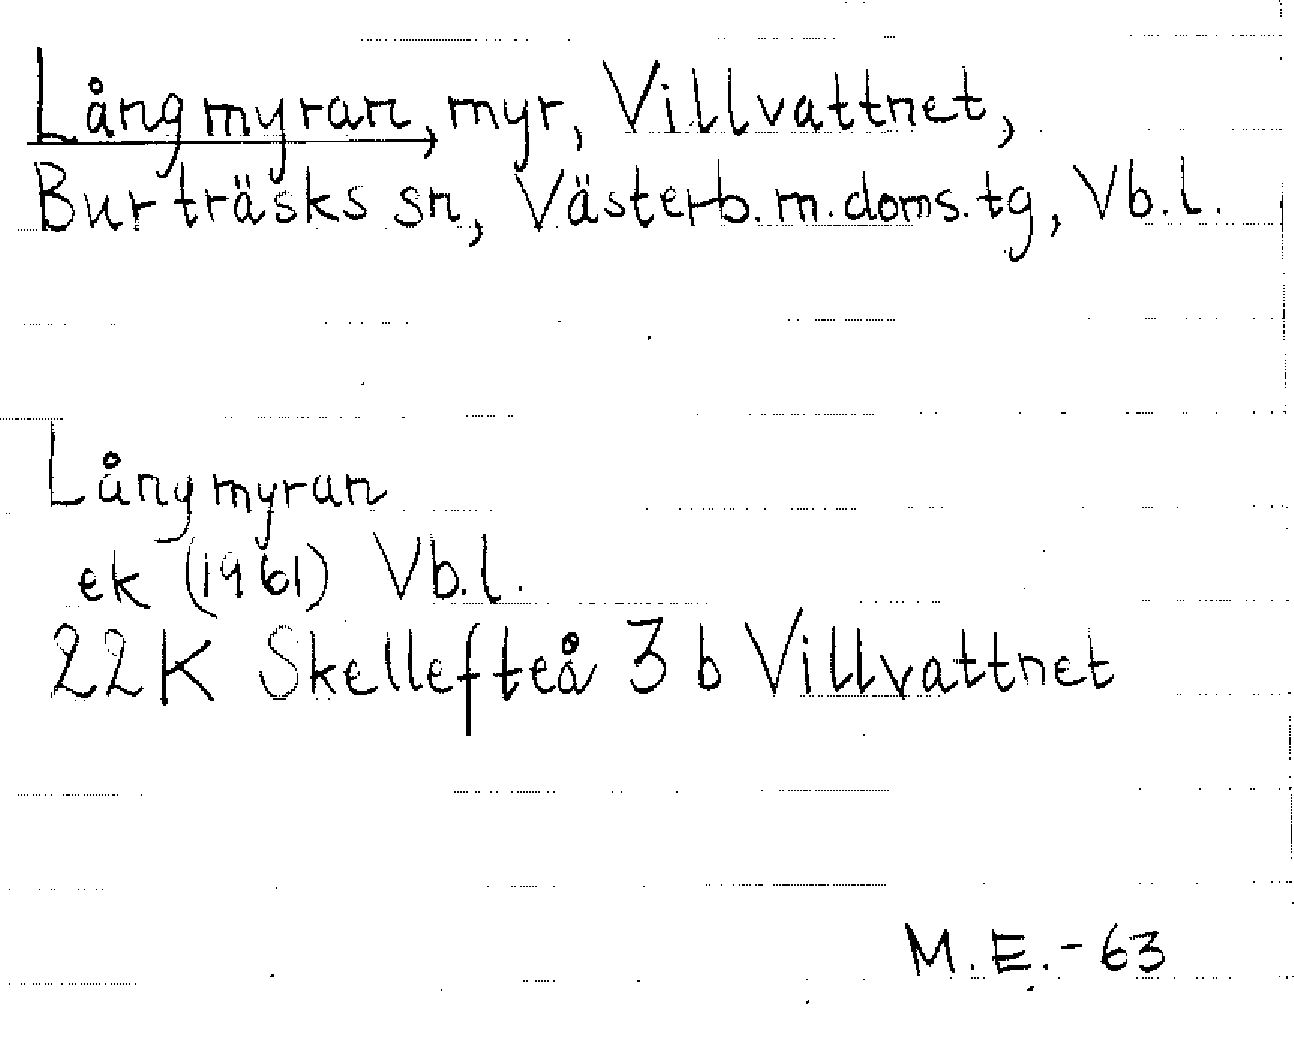 Långmyran, myr, Villvattnet,
Burträsks sn, Västerb. m. doms. tg, Vb. l.
Långmyran
ek (1961) Vb. l.
22K Skellefteå 3 b Villvattnet
M. E. - 63